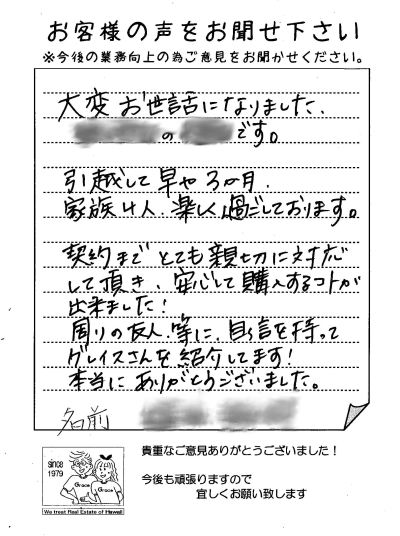 お客様の声をお聞せ下さい
※今後の業務向上の為ご意見をお聞かせください。
大変お世話になりました、
の です。
引越して早や3か月、
家族4人、楽しく過ごしております。
契約まで とても親切に対応
して頂き、安心して購入するコトが
出来ました!
周りの友人、等に、自信を持って
グレイスさんを紹介してます!
本当に ありがとうございました。
名前
貴重なご意見ありがとうございました!
since
1979
Grace
Grace
今後も頑張りますので
宜しくお願い致します
We treat Real Estate of Hawaii